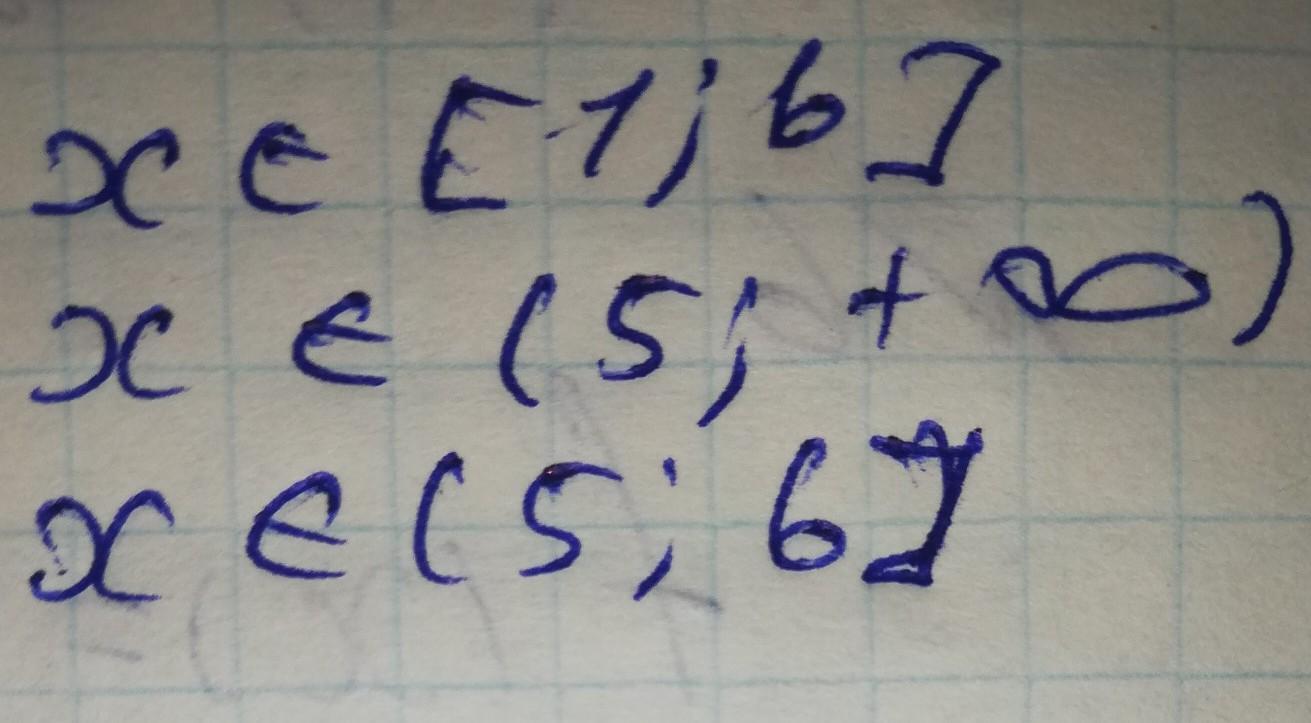 x ∈ [-1; 6]
x ∈ (5; +∞)
x ∈ (5; 6]